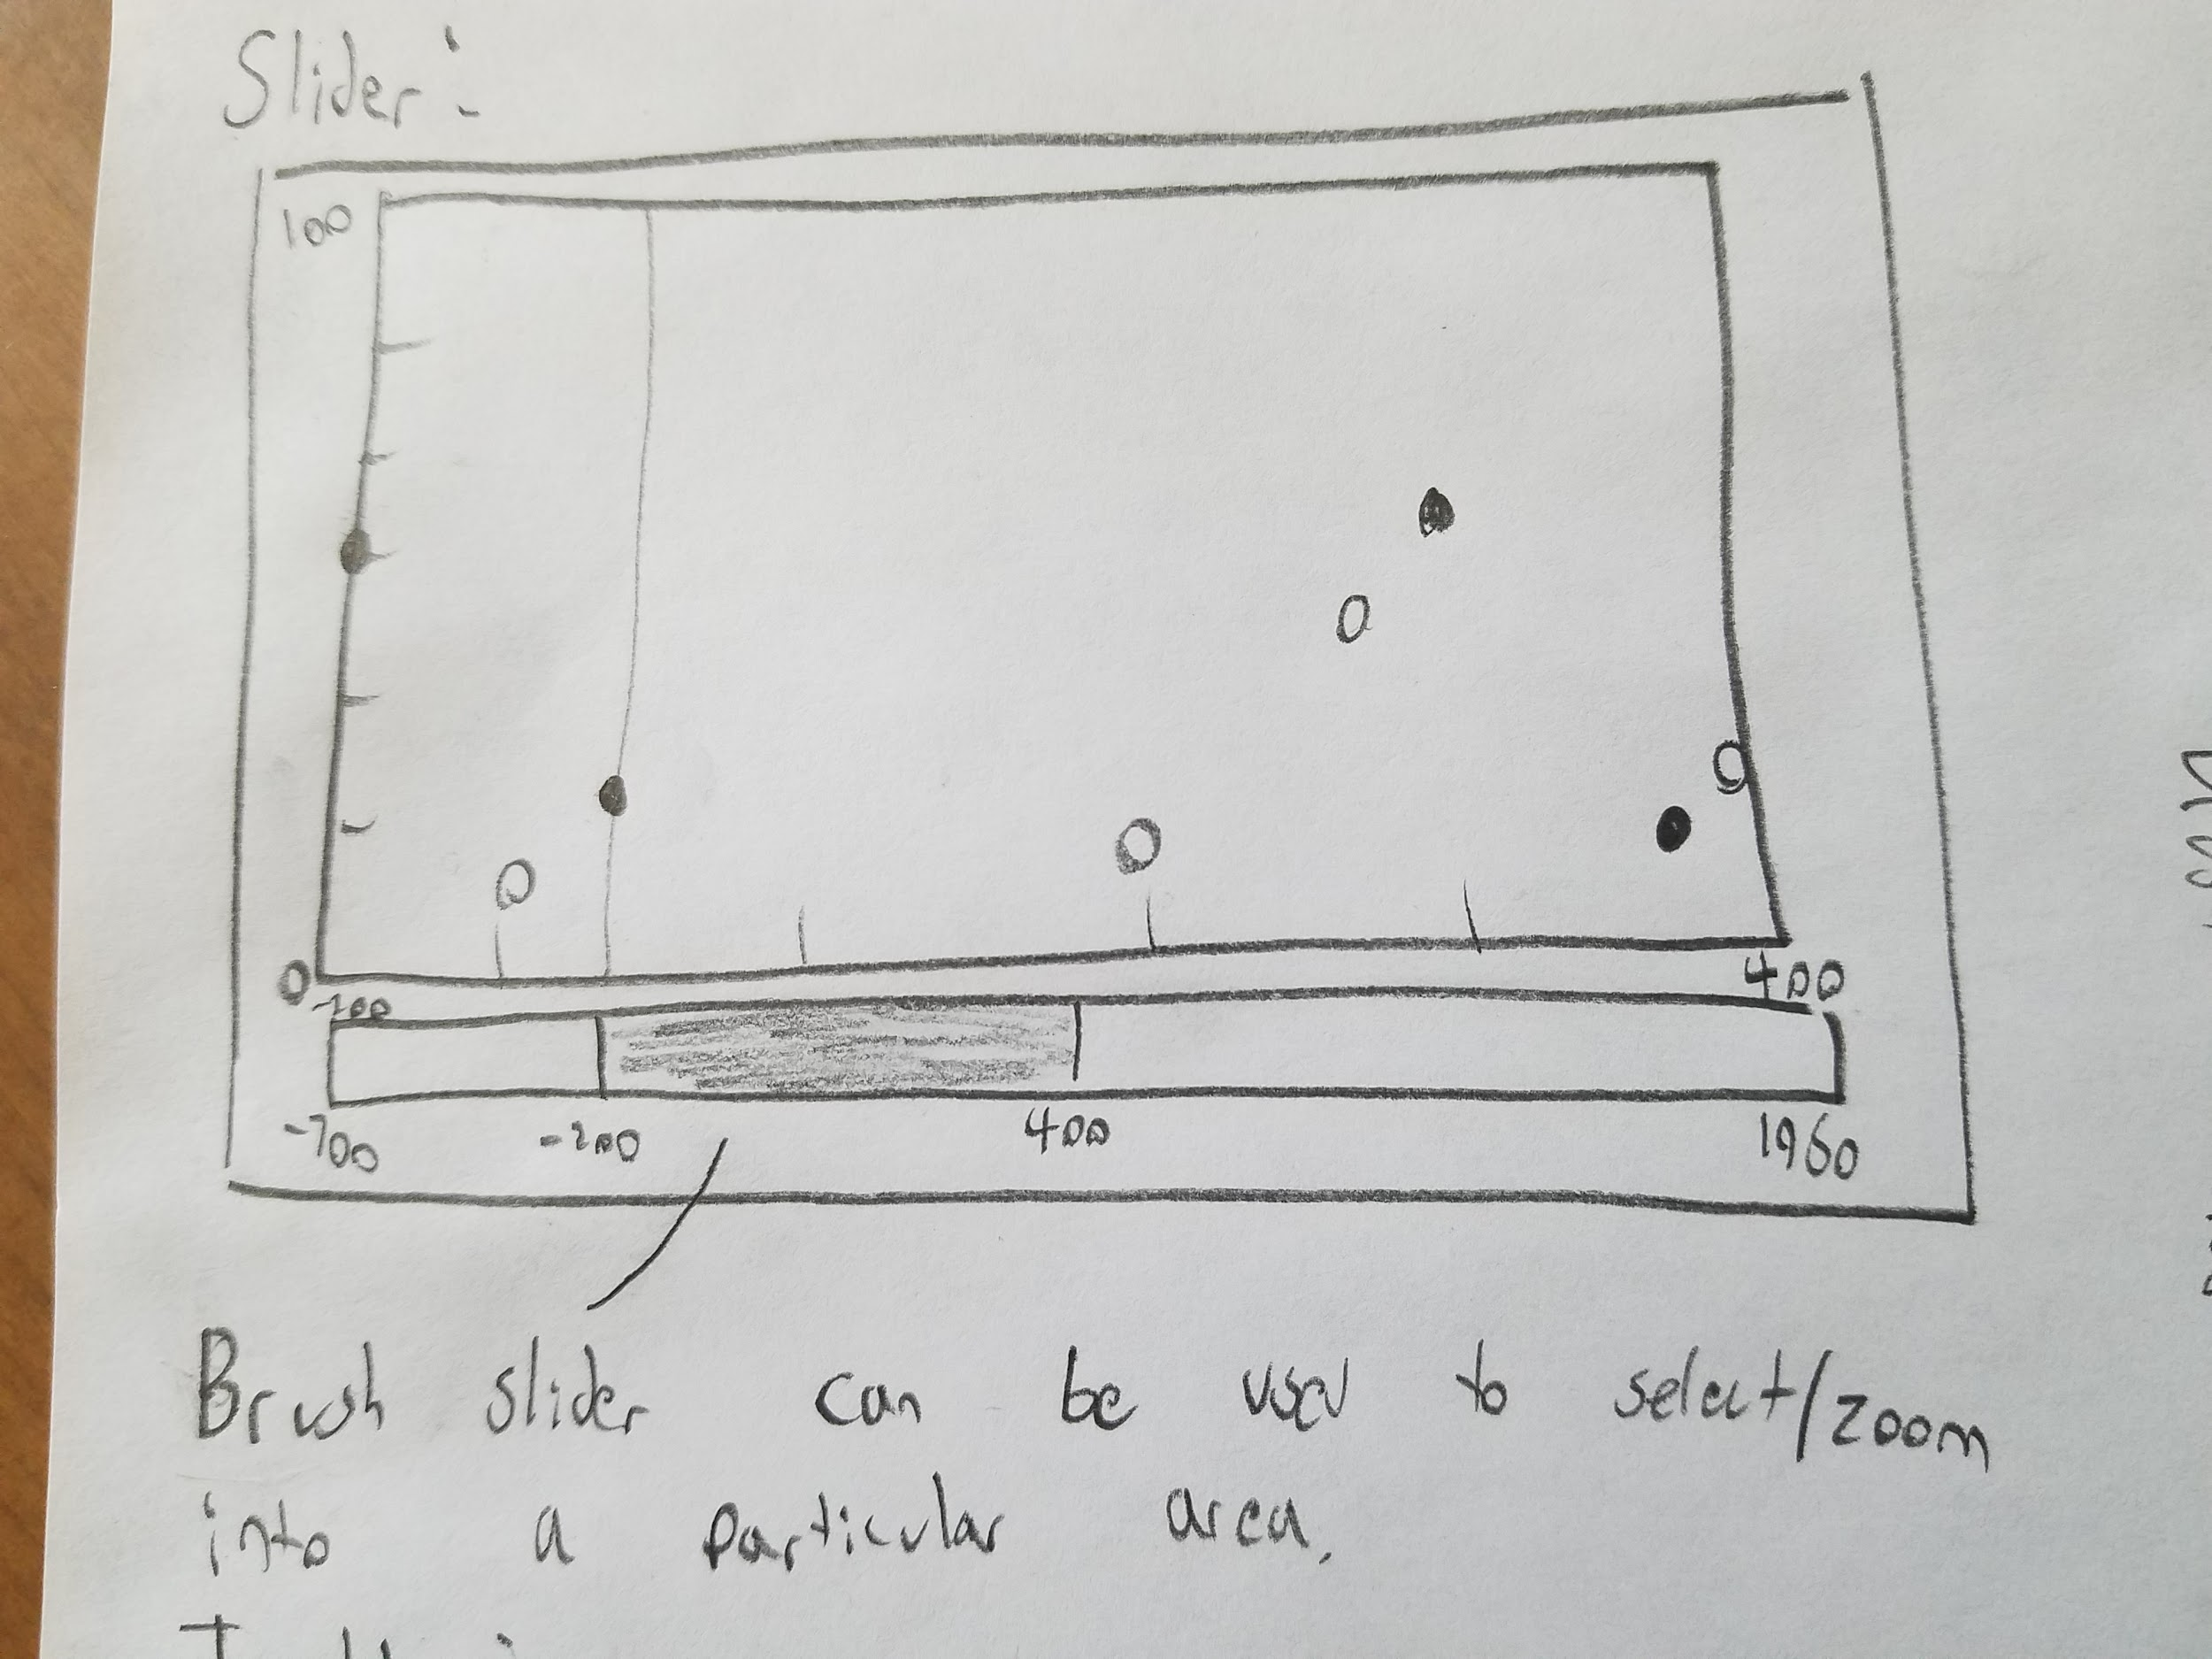 Slider:
100
0
-200
400
-700
-200
400
1960
Brush slider can be used to select/zoom
into a particular area.